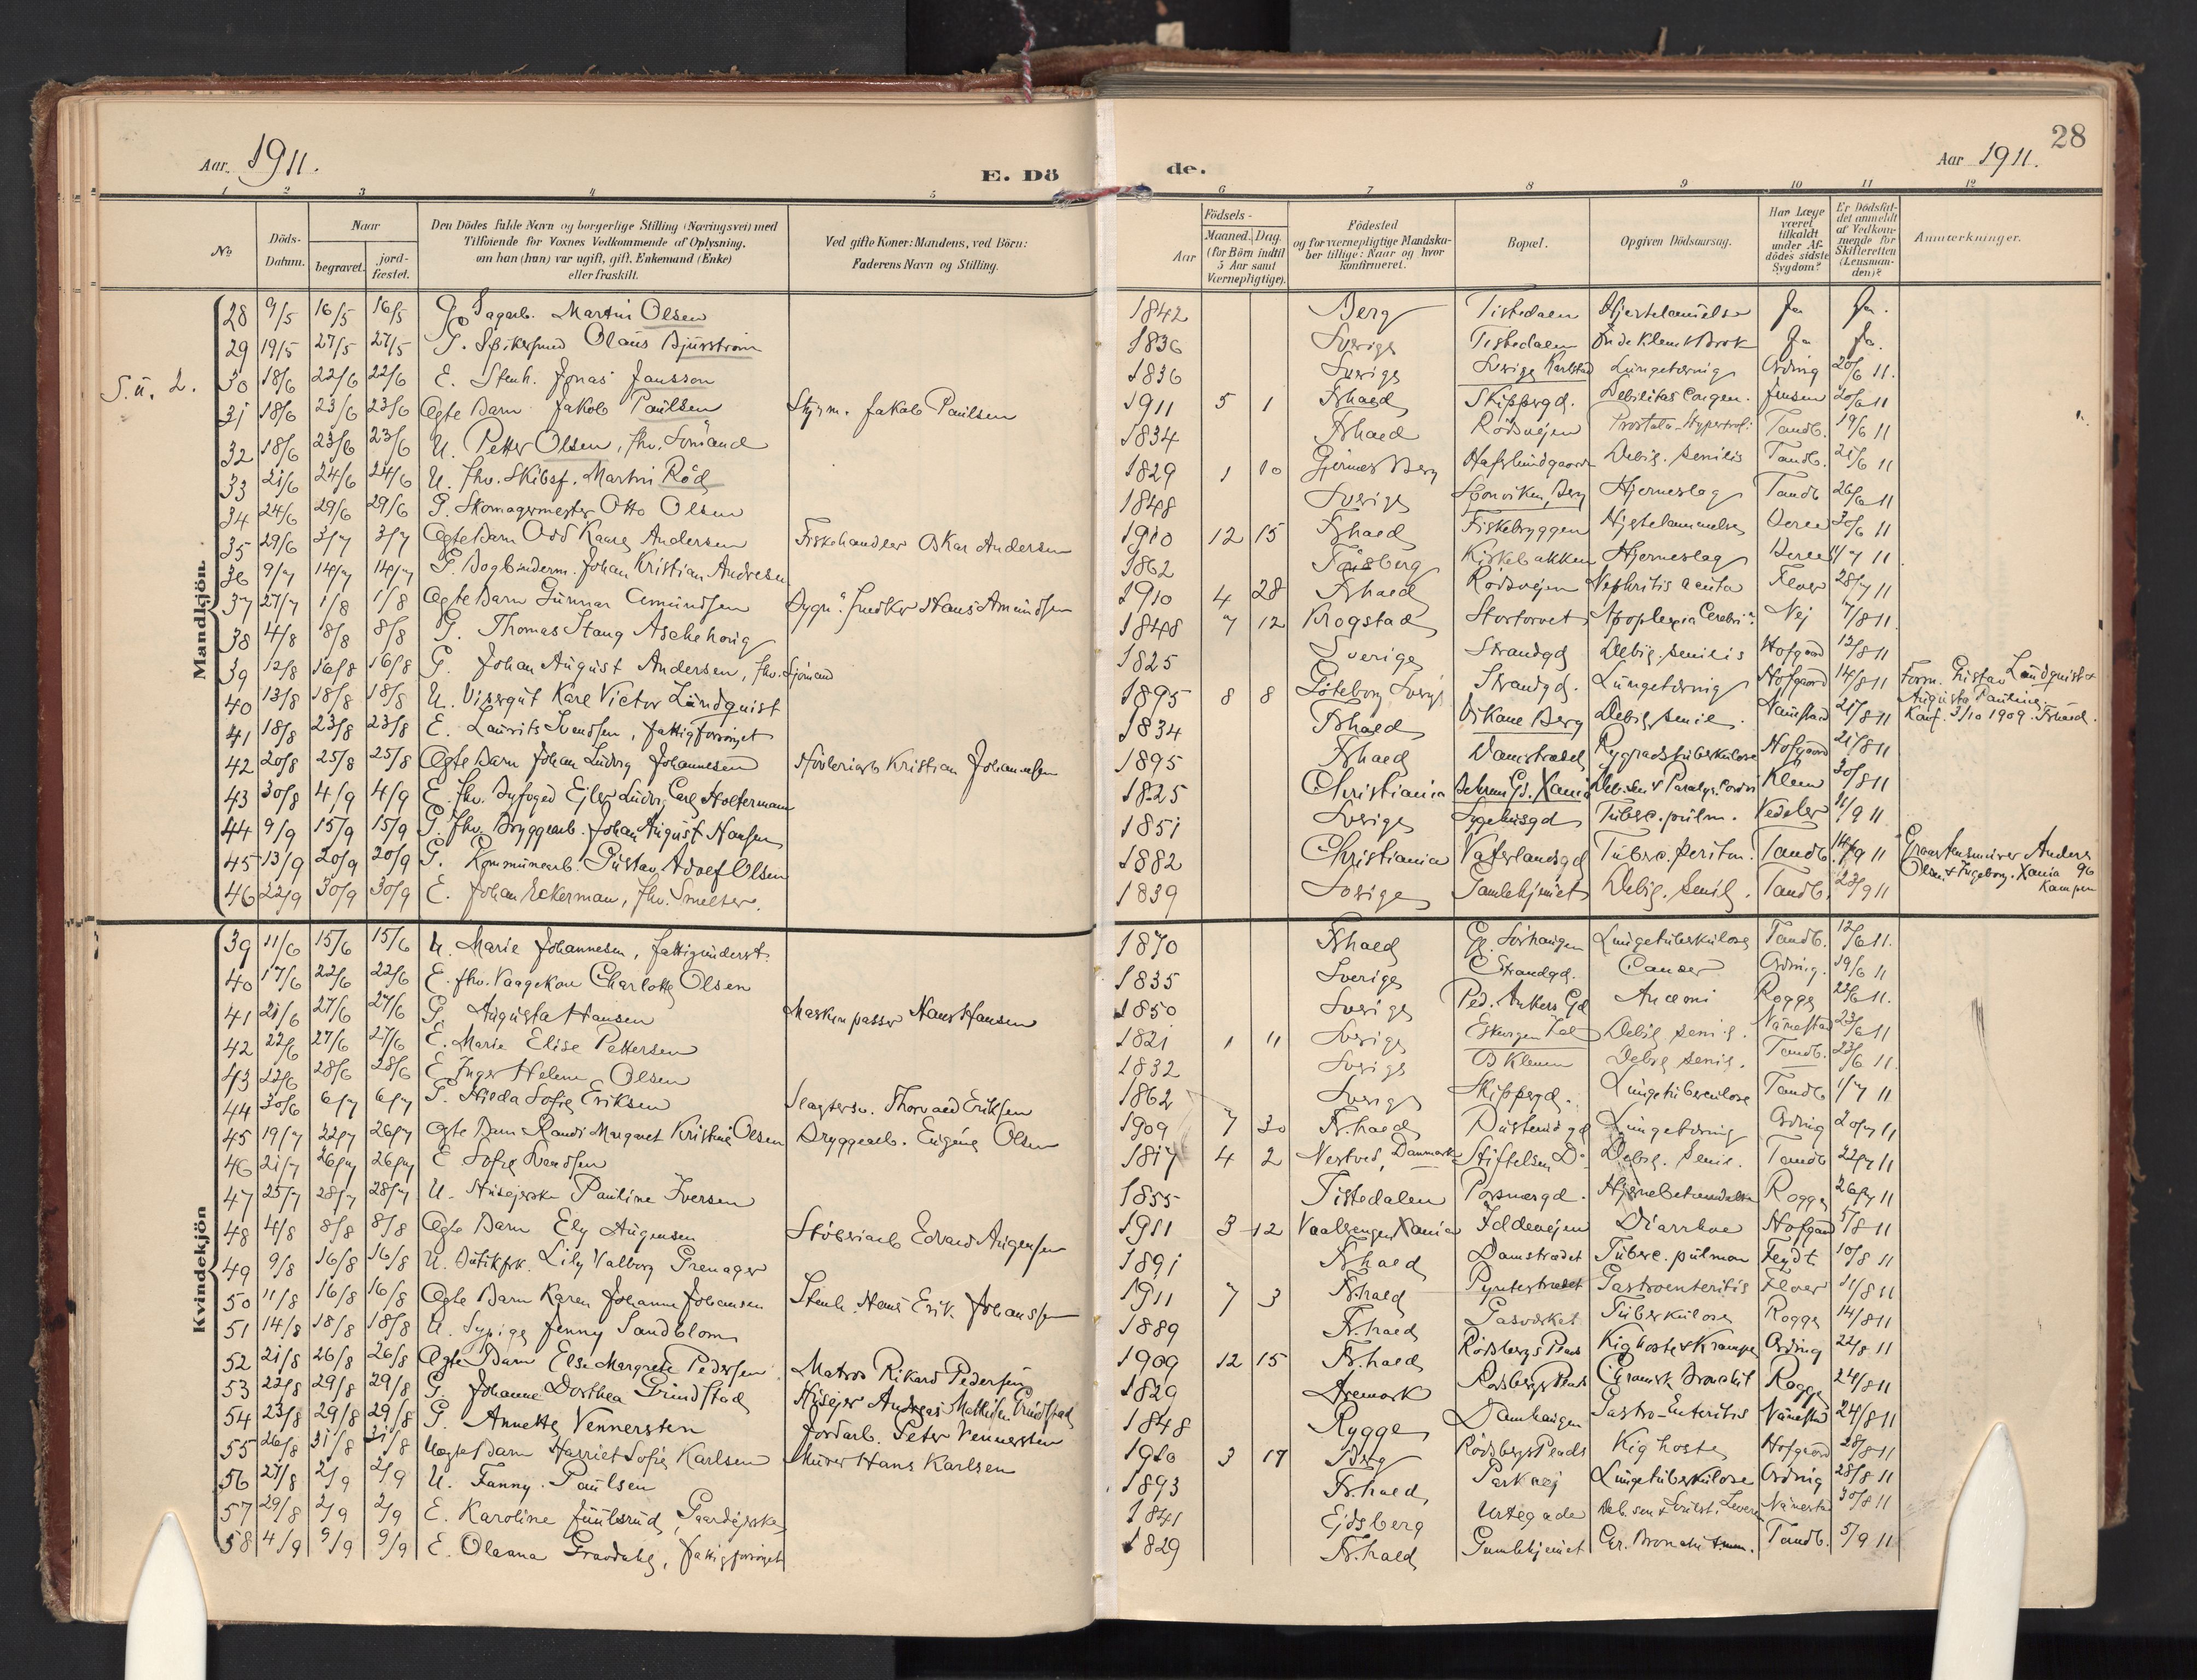 Aar 1911. E. Dö
de. Aar 1911. 28
1 2 3 4 5 6 7 8 9 10 11 12
No
Döds-Datum.
Naar
begravet.
jord-fæstet.
Den Dödes fulde Navn og borgerlige Stilling (Næringsvei) med
Tilföiende for Voxnes Vedkommende af Oplysning,
om han (hun) var ugift, gift, Enkemand (Enke)
eller fraskilt.
Ved gifte Koner: Mandens, ved Börn:
Faderens Navn og Stilling.
Födsels-
Aar
Maaned. Dag.
(for Börn indtil
5 Aar samt
Værnepligtige).
Födested
og for værnepligtige Mandska-
ber tillige: Naar og hvor
konfirmeret.
Bopæl.
Opgiven Dödsaarsag.
Har Læge
været
tilkaldt
under Af-
dödes sidste
Sygdom?
Er Dödsfal-
det anmeldt
af Vedkom-
mende for
Skifteretten
(Lensman-
den)?
Anmærkninger.
Mandkjön.
28 9/5 16/5 16/5 G. Dagarb. Martin Olsen 1842 Berg Tistedalen Hjertelammelse Ja Ja.
29 19/5 27/5 27/5 G. Olaus Bjurström 1836 Sverige Tistedalen Ja Ja.
S. u. 2. 30 18/6 22/6 22/6 E. Stenh. Jonas Jansson 1836 Sverige Sverige Karlstad Lungebetændelse Ording 20/6 11.
31 18/6 23/6 23/6 Ægte Barn Jakob Paulsen Styrm. Jakob Paulsen 1911 5 1 Frhald Skippergd. Debilitas congen. Jensen 20/6 11
32 18/6 23/6 23/6 U. Petter Olsen, fhv. Sömand 1834 Frhald Rödsvejen Prostata-Hypertrof. Tandb. 19/6 11
33 21/6 24/6 24/6 U. fhv. Skibsf. Martin Röd 1829 1 10 Berg Debil. senilis Tandb. 21/6 11
34 24/6 29/6 29/6 G. Skomagermester Otto Olsen 1848 Sverige Sponviken, Berg Hjerneslag Tandb 26/6 11
35 29/6 3/7 3/7 Ægte Barn Odd Kaare Andersen Fiskehandler Oskar Andersen 1910 12 15 Frhald Fiskebryggen Hjertelammelse 30/6 11
36 9/7 14/7 14/7 G. Bogbinderm. Johan Kristian Andresen 1862 Tönsberg Kirkebakken Hjerneslag 11/7 11
37 27/7 1/8 1/8 Ægte Barn Gunnar Amundsen Snedker Hans Amundsen 1910 4 28 Frhald Rödsvejen Nephritis acuta Fever 28/7 11
38 4/8 8/8 8/8 G. Thomas Stang Aschehoug 1848 7 12 Krogstad Stortorvet Apoplexia Cerebri Nej 7/8 11
39 12/8 16/8 16/8 G. Johan August Andersen, fhv. Sjömand 1825 Sverige Strandgd Debil. senilis Hofgaard 12/8 11
40 13/8 18/8 18/8 U. Visergut Karl Victor Lundquist 1895 8 8 Göteborg Sverige Strandgd. Hofgaard 14/8 11 Form. Gustav Lundquist &
Augusta Pauline,
Konf. 3/10 1909. Frhald.
41 18/8 23/8 23/8 E. Laurits Svendsen, fattigforsörget 1834 Frhald Berg Debil. senil. Nannestad 21/8 11
42 20/8 25/8 25/8 Ægte Barn Johan Ludvig Johannesen Kristian Johannesen 1895 Frhald Damstrædet Rygradstuberkulose Hofgaard 21/8 11
43 30/8 4/9 4/9 E. fhv. Byfoged Ejler Ludv. Carl Holtermann 1825 Christiania Klem 30/8 11
44 9/9 15/9 15/9 G. fhv. Bryggearb. Johan August Hansen 1851 Sverige Sygehusgd Tuberc. pulm. Vedeler 11/9 11
45 13/9 20/9 20/9 G. Kommunearb. Gustav Adolf Olsen 1882 Christiania Vaterlandsgd Tuberc. periton. Tandb. 14/9 11 Anders
Olsen & Ingeborg. Xania 96
Kampen
46 22/9 30/9 30/9 E. Johan Eckerman, fhv. Smelter. 1839 Sverige Gamlehjemmet Debil. Senil. Tandb. 23/9 11
Kvindekjön
39 11/6 15/6 15/6 U. Marie Johannesen, fattigunderst. 1870 Frhald Lungetuberkulose Tandb. 12/6 11.
40 17/6 22/6 22/6 E. fhv. Vaagekone Charlotte Olsen 1835 Sverige Strandgd. Cancer Ording. 19/6 11
41 21/6 27/6 27/6 G. Augusta Hansen Maskinpasser Hans Hansen 1850 Sverige Ped. Ankers Gd Anæmi Rogge 22/6 11.
42 22/6 27/6 27/6 E. Marie Elise Pettersen 1821 1 11 Sverige Debil senil. Nannestad 23/6 11
43 22/6 28/6 28/6 E. Inger Helene Olsen 1832 Sverige Debil senil. Tandb. 23/6 11.
44 30/6 6/7 6/7 G. Hilda Sofie Eriksen Slagtersv. Thorvald Eriksen 1862 Sverige Skippergd. Lungetuberculose Tandb 1/7 11
45 19/7 22/7 26/7 Ægte Barn Randi Margaret Kristine Olsen Bryggearb. Eugene Olsen 1909 7 30 Fr.hald Ording 20/7 11
46 21/7 26/7 26/7 E. Sofie Svendsen 1817 4 2 Nestved, Danmark Stiftelsen Debil. senil. Tandb 22/7 11
47 25/7 28/7 28/7 U. Husejerske Pauline Iversen 1855 Tistedalen Hjernebetændelse Rogge 26/7 11
48 4/8 8/8 8/8 Ægte Barn Ely Augensen Edvard Augensen 1911 3 12 Vaalerengen Xania Iddevejen Diarrhoe Hofgaard 5/8 11
49 9/8 16/8 16/8 U. Butikfrk. Lily Valborg Grenager 1891 Frhald Damstrædet Tuberc. pulmon Feydt 10/8 11
50 11/8 16/8 16/8 Ægte Barn Karen Johanne Johansen Stenh. Hans Erik Johanssen 1911 7 3 Fr.hald Pyntestrædet Gastroenteritis 11/8 11
51 14/8 18/8 18/8 U. Sypige Jenny Sandblom 1889 Fr.hald Gasverket Tuberkulose Rogge 14/8 11
52 21/8 26/8 26/8 Ægte Barn Else Margrete Pedersen Matros Rikard Pedersen 1909 12 15 Fr.hald Rödsbergs Plads Kighoste & Krampe Ording 22/8 11
53 22/8 29/8 29/8 G. Johanne Dorthea Grindstad Husejer Andreas Mathisen Grindstad 1829 Aremark Rödsbergs Plads Chronisk Bronchit Rogge 24/8 11
54 23/8 29/8 29/8 G. Annette Vennersten Jordarb. Peter Vennersten 1848 Rygge Damhaugen Gastro-Enteritis Nannestad 24/8 11
55 26/8 31/8 31/8 Uægte Barn Harriet Sofie Karlsen Murer Hans Karlsen 1910 3 17 Berg Rödsbergs Plads Kighoste Hofgaard 28/8 11
56 27/8 2/9 2/9 U. Fanny Paulsen 1893 Fr.hald Parkvej Lungetuberkulose Ording 28/8 11
57 29/8 2/9 2/9 E. Karoline Juulsrud, Gaardejerske 1841 Ejdsberg Urtegaden Nannestad 30/8 11
58 4/9 9/9 9/9 E. Oleana Gravdahl, fattigforsörget 1829 Fr.hald Gamlehjemmet Tandb. 5/9 11